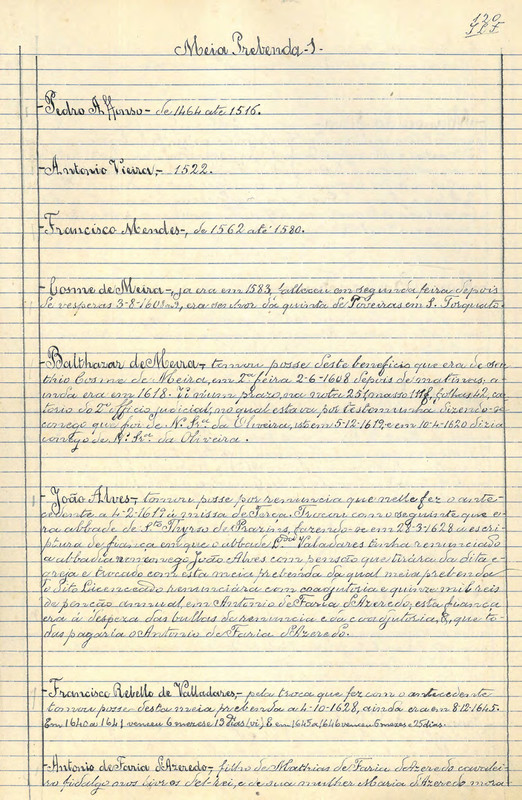 120
Meia Prebenda 1.
-Pedro Affonso- de 1464 até 1516.
-Antonio Vieira,- 1522.
-Francisco Mendes-, de 1562 até 1580.
-Cosme de Meira-, ja era em 1583, falleceu em segunda feira depois
de vesperas 3-8-1608, era senhor da quinta de em S. Torquato.
-Balthazar de Meira,- tomou posse deste beneficio que era de seu
thio Cosme de Meira, em 2ª feira 2-6-1608 depois de matinas; a
inda era em 1618. Vi n'um prazo, na nota 25, masso folhas 42, car
torio do 2º officio judicial, no qual estava por testemunha dizendo-se
conego que foi de Nª Srª da Oliveira, isto em 5-12-1619, e em 10-4-1620 dizia
conego de Nª Srª da Oliveira.
-João Alves,- tomou posse por renuncia que nelle fez o ante-
cedente a 4-2-1619 á missa de Terça. Trocou com o seguinte que e-
ra abbade de Sto Thyrso de Prazins, fazendo-se em 29-3-1628 a escri-
ptura de fiança em que o abbade Valadares tinha renunciado
a abbadia no conego João Alves com pensão que tirára da dita e-
greja e trocado com esta meia prebenda da qual meia prebenda
o dito Licenceado renunciára com coadjutoria e quinze mil reis
de penção annual, em Antonio de Faria d'Azeredo, esta fiança
era á despeza das bullas da renuncia e da coadjutoria, &, que to-
das pagaria o Antonio de Faria d'Azeredo.
-Francisco Rebello de Valladares,- pela troca que fez com o antecedente
tomou posse desta meia prebenda a 4-10-1628, ainda era em 8-12-1645.
Em 1640 a 1641 venceu 6 mezes e 19 dias (vi) & em 1645 a 1646 venceu 6 mezes e 25 dias.
-Antonio de Faria d'Azeredo,- filho de Mathias de Faria d'Azeredo cavalei-
ro fidalgo nos livros d'el-rei, e de sua mulher Maria d'Azeredo mora-